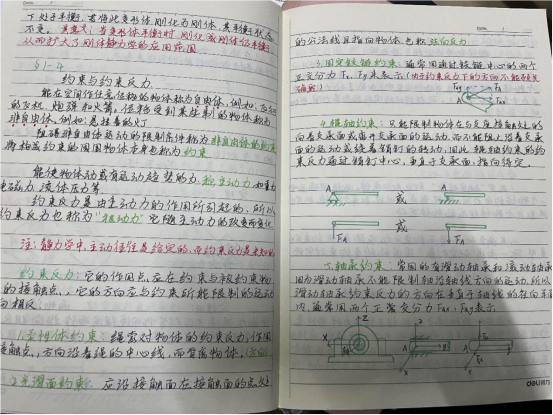 下处于平衡，若将此变形体刚化为刚体，其平衡状态
不变。其意义：当变形体平衡时，刚化成刚体仍平衡
从而扩大了刚体静力学的应用范围
§1-4
约束与约束反力
能在空间作任意位移的物体称为自由体，例如：飞行
的飞机，炮弹和火箭。位移受到某些限制的物体称为
非自由体，例如：悬挂着的灯
阻碍非自由体运动的限制条件称为非自由体的约束
构成约束的周围物体本身也称为约束
能使物体动或有运动趋势的力，称主动力，如重力
电磁力，流体压力等
约束反力是由主动力的作用所引起的，所以
约束反力也称为"被动力"它随主动力的改变而变化
注：静力学中，主动力往往是给定的，而约束反力是未知的
约束反力：它的作用点，应在约束与被约束物
的接触点，它的方向应与约束所能限制的运动
向相反
1.柔性体约束：绳索对物体的约束反力，作用
接触点，方向沿着绳的中心线，而背离物体，
2.光滑面约束：应沿接触面在接触面的点处
的公法线且指向物体，也称法向反力
3.固定铰链约束：通常用通过铰链中心的两个
正交分力Fx、Fy来表示（由于约束反力下的方向不能预先
确定）
Fay FA
A Fax
4.辊轴约束：只能限制物体在与支座接触A处的
向着支承面或离开支承面的运动，而不能阻止沿着支承
面的运动或绕着销钉的转动，因此辊轴约束的约
束反力通过销钉中心，垂直于支承面，指向待定。
A 或 A
A 或 A
FA FA
5.轴承约束：常用的有滑动轴承和滚动轴承
因为滑动轴承不能限制沿轴线方向的运动，所以
滑动轴承约束反力的方向在垂直于轴线的径向平面
内，通常用两个正交分力FAx、FAy表示
Z
X
A
deli得力